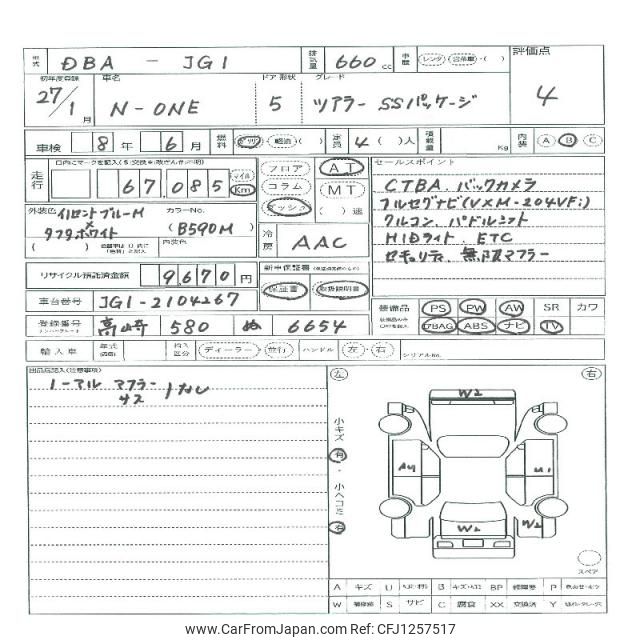 型式 DBA - JG1 排気量 660 cc 車歴 レンタ ( ) 評価点
初年度登録 車名 ドア 形状 グレード
27/1月 N-ONE 5 ツアラー SSパッケージ 4
車検 8年 6月 燃料 ガソリン ・ 軽油 ・ ( ) 定員 4 ( )人 積載量 Kg 内装 A B C
走行 67,085 マイル Km フロア AT セールスポイント
コラム MT CTBA. バックカメラ
外装色 イノセントブルーM カラーNo. ダッシュ ( )速 フルセグナビ(VXM-204VFi)
×タフタホワイト (B590M) クルコン. パドルシフト
( ) 内装色 冷房 AAC HIDライト. ETC
セキュリティ. 無限マフラー
リサイクル預託済金額 9,670円 新車保証書
保証書 取扱説明書
車台番号 JG1-2104267 装備品 PS PW AW SR カワ
登録番号 580 ぬ 6654 ABAG ABS ナビ TV
輸入車 年式 輸入区分 ディーラー ・ 並行 ハンドル 左 ・ 右 シリアルNo.
出品店記入(注意事項)
ノーマル マフラー サス なし
左 右
小キズ 有 ・ 小ヘコミ 有
W2
A4 U1
W2 W2
スペア
A キズ U B P
W S サビ C 腐食 XX 交換済 Y
www.CarFromJapan.com CFJ1257517